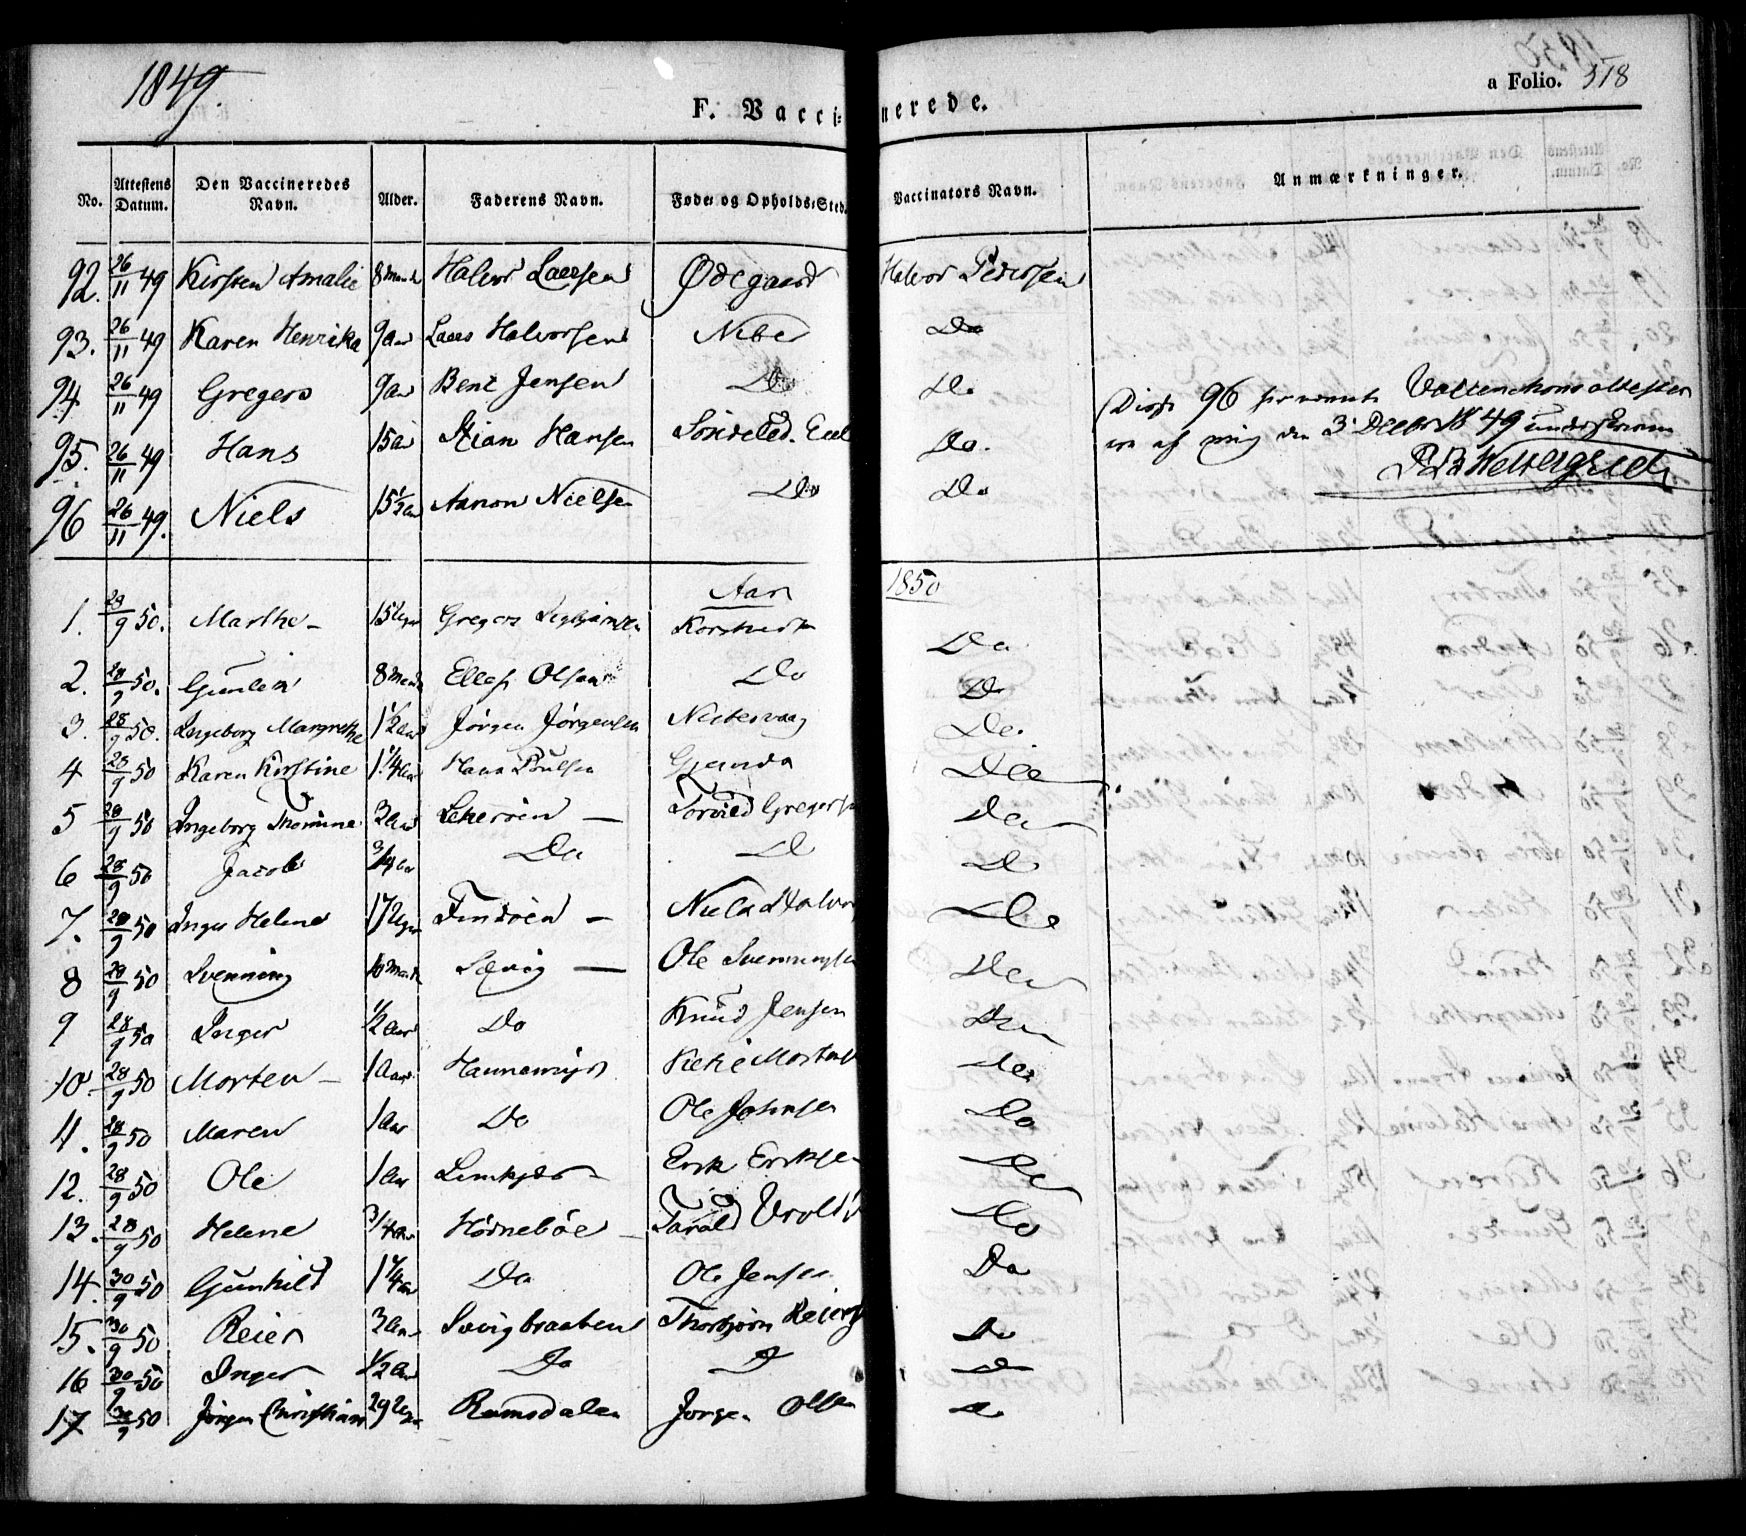 1849.
a Folio. 318
F. Vaccinerede.
No. Attestens Datum. Den Vaccineredes Navn. Alder. Faderens Navn. Føde- og Opholds-Sted. Vaccinators Navn. Anmærkninger.
92. 26/11 49 Kirsten Amalie 8 Halvor Laersen Ødegaard Halvor Pedersen
93. 26/11 49 Karen Henrika 9 aar Laers Halvorsen Nibe Do
94 26/11 49 Gregers 9 aar Bent Jensen Do Do
95. 26/11 49 Hans 15 aar Stian Hansen Do.
96 26/11 49. Niels 15 1/2 aar Aanon Nielsen Do Do
Disse 96 Vaccinations attester
af mig den 3 Decbr 1849
Aar 1850
1. 28/9 50. Marthe 15 Uger Gregers Do
2. 28/9 50. 8 Ellef Olsen Do Do
3. 28/9 50. Ingeborg Margrethe 1 1/2 aar Jørgen Jørgensen Do.
4 28/9 50 Karen Kirstine 1 1/4 aar Hans Poulsen Do
5 28/9 50 Ingeborg 3 aar Do
6 28/9 50 Jacob 3/4 aar Do Do Do
7. 28/9 50 Inger Helene 17 Uger Niels Halvor Do
8 28/9 50 Svenning 10 Ole Svenningsen Do
9 28/9 50 Inger 1/2 aar Do Knud Jensen Do
10. 28/9 50 Morten 1 Aar Do
11. 28/9 50 Maren 1 aar Do Ole Johnsen Do
12. 28/9 50 Ole 1 aar Erik Eriksen Do
13. 28/9 50 Helene 3/4 aar Hørnebøe Tarald Do
14. 30/9 50 Gunhild 1 1/4 aar Do Ole Jensen Do
15. 30/9 50 Reier 3 aar Sævigbraaten Thorbjørn Do
16 30/9 50 Inger 1/2 aar Do Do Do
17 30/9 50 Jørgen Christian 29 Uger Ramsdalen Jørgen Olsen Do